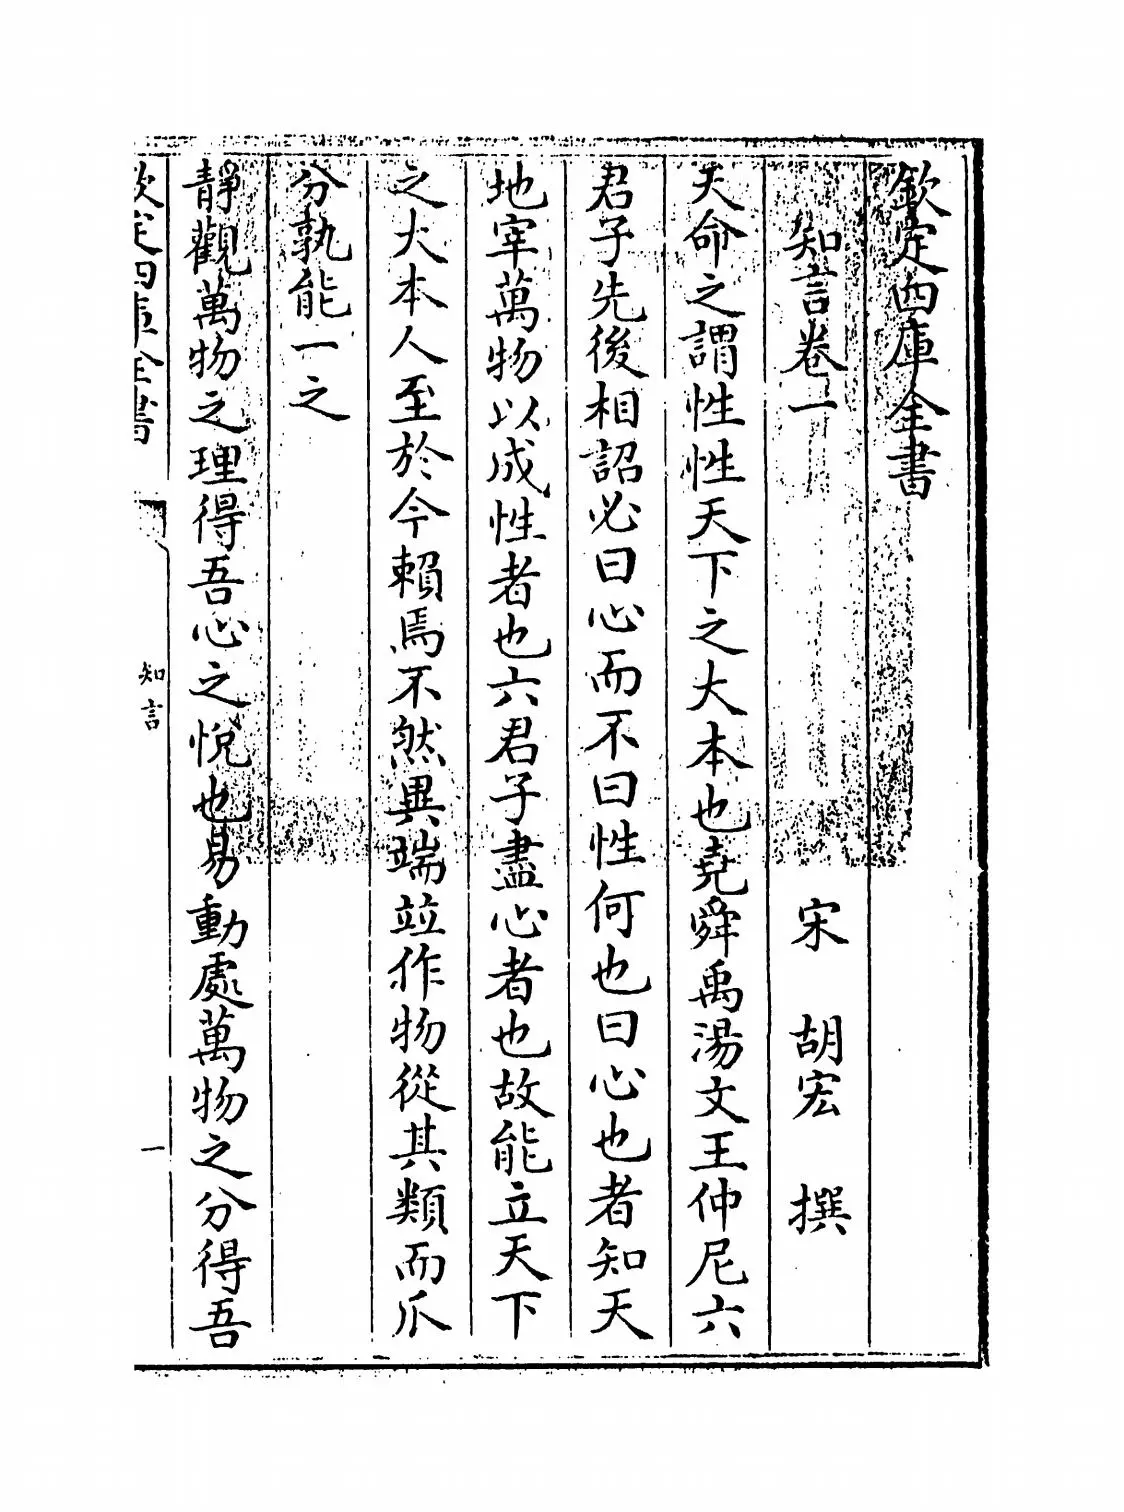 欽定四庫全書
知言卷一
宋 胡宏 撰
天命之謂性性天下之大本也堯舜禹湯文王仲尼六
君子先後相詔必曰心而不曰性何也曰心也者知天
地宰萬物以成性者也六君子盡心者也故能立天下
之大本人至於今賴焉不然異端竝作物從其類而瓜
分孰能一之
靜觀萬物之理得吾心之悅也易動處萬物之分得吾
欽定四庫全書
知言
一